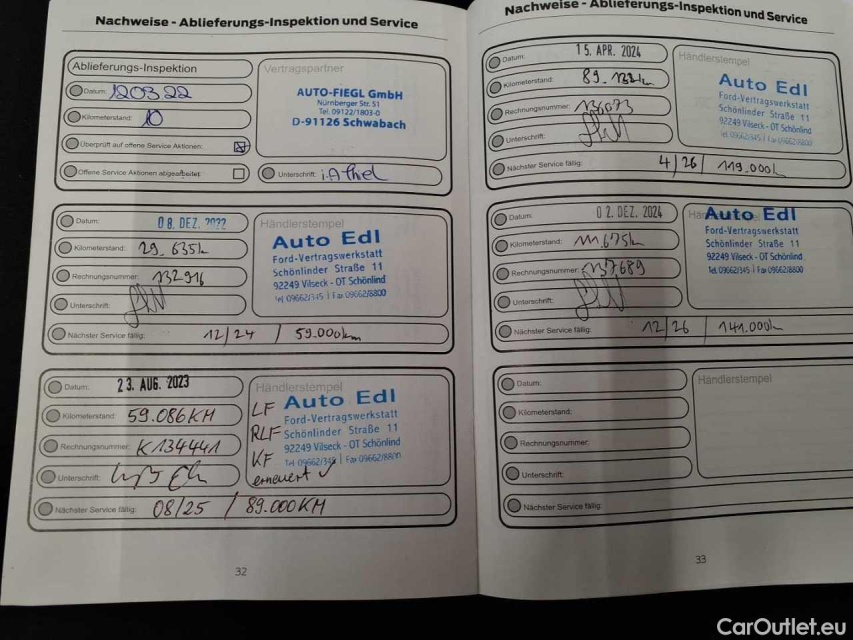 Nachweise - Ablieferungs-Inspektion und Service
Ablieferungs-Inspektion
Datum: 120322
Kilometerstand: 10
Überprüft auf offene Service Aktionen:
Offene Service Aktionen abgearbeitet:
Vertragspartner
AUTO-FIEGL GmbH
Nürnberger Str. 51
Tel. 09122/1803-0
D-91126 Schwabach
Unterschrift:
Datum: 08. DEZ. 2022
Kilometerstand: 29.635k
Rechnungsnummer: 132916
Unterschrift:
Nächster Service fällig: 12/24 / 59.000km
Händlerstempel
Auto Edl
Ford-Vertragswerkstatt
Schönlinder Straße 11
92249 Vilseck - OT Schönlind
Tel. 09662/345 | Fax 09662/8800
Datum: 23. AUG. 2023
Kilometerstand: 59.086KM
Rechnungsnummer: K134441
Unterschrift:
Nächster Service fällig: 08/25 / 89.000KM
Händlerstempel
LF
RLF
KF
erneuert ✓
Auto Edl
Ford-Vertragswerkstatt
Schönlinder Straße 11
92249 Vilseck - OT Schönlind
Tel. 09662/345 | Fax 09662/8800
32
Nachweise - Ablieferungs-Inspektion und Service
Datum: 15. APR. 2024
Kilometerstand:
Rechnungsnummer: 136073
Unterschrift:
Nächster Service fällig: 4/26 / 119.000k
Händlerstempel
Auto Edl
Ford-Vertragswerkstatt
Schönlinder Straße 11
92249 Vilseck - OT Schönlind
Tel. 09662/345 | Fax 09662/8800
Datum: 02. DEZ. 2024
Kilometerstand: 111.675k
Rechnungsnummer: 137689
Unterschrift:
Nächster Service fällig: 12/26 / 141.000k
Auto Edl
Ford-Vertragswerkstatt
Schönlinder Straße 11
92249 Vilseck - OT Schönlind
Tel. 09662/345 | Fax 09662/8800
Datum:
Kilometerstand:
Rechnungsnummer:
Unterschrift:
Nächster Service fällig:
Händlerstempel
33
CarOutlet.eu